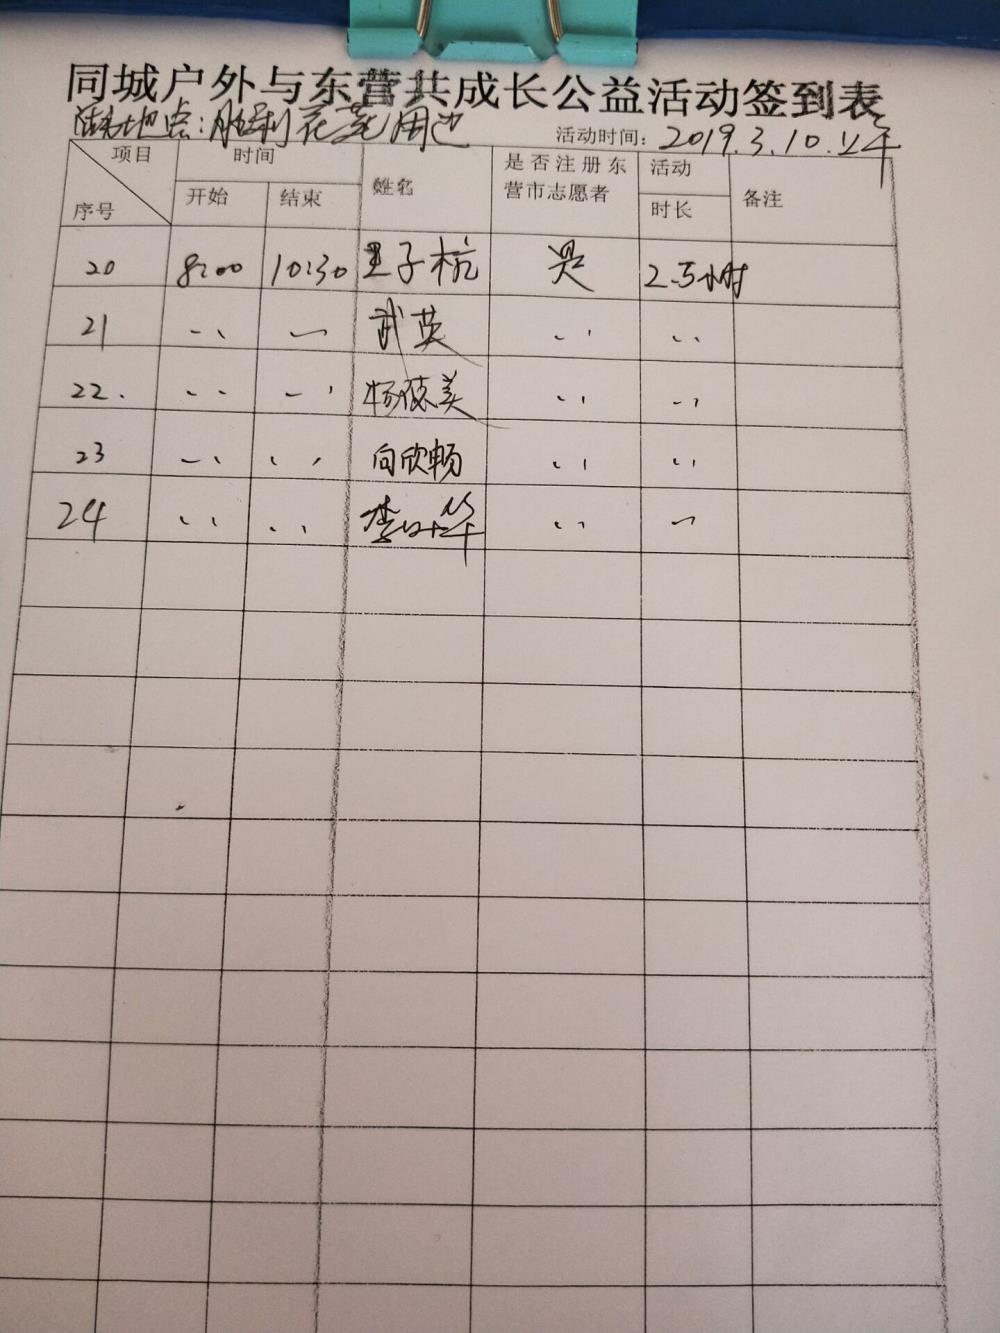 同城户外与东营共成长公益活动签到表
地点:胜利花苑周边 活动时间: 2019.3.10.上午
项目 时间 姓名 是否注册东营市志愿者 活动时长 备注
序号 开始 结束
20 8:00 10:30 王子杭 是 2.5小时
21 〃 〃 武英 〃 〃
22. 〃 〃 杨德美 〃 〃
23 〃 〃 向欣畅 〃 〃
24 〃 〃 李 〃 〃